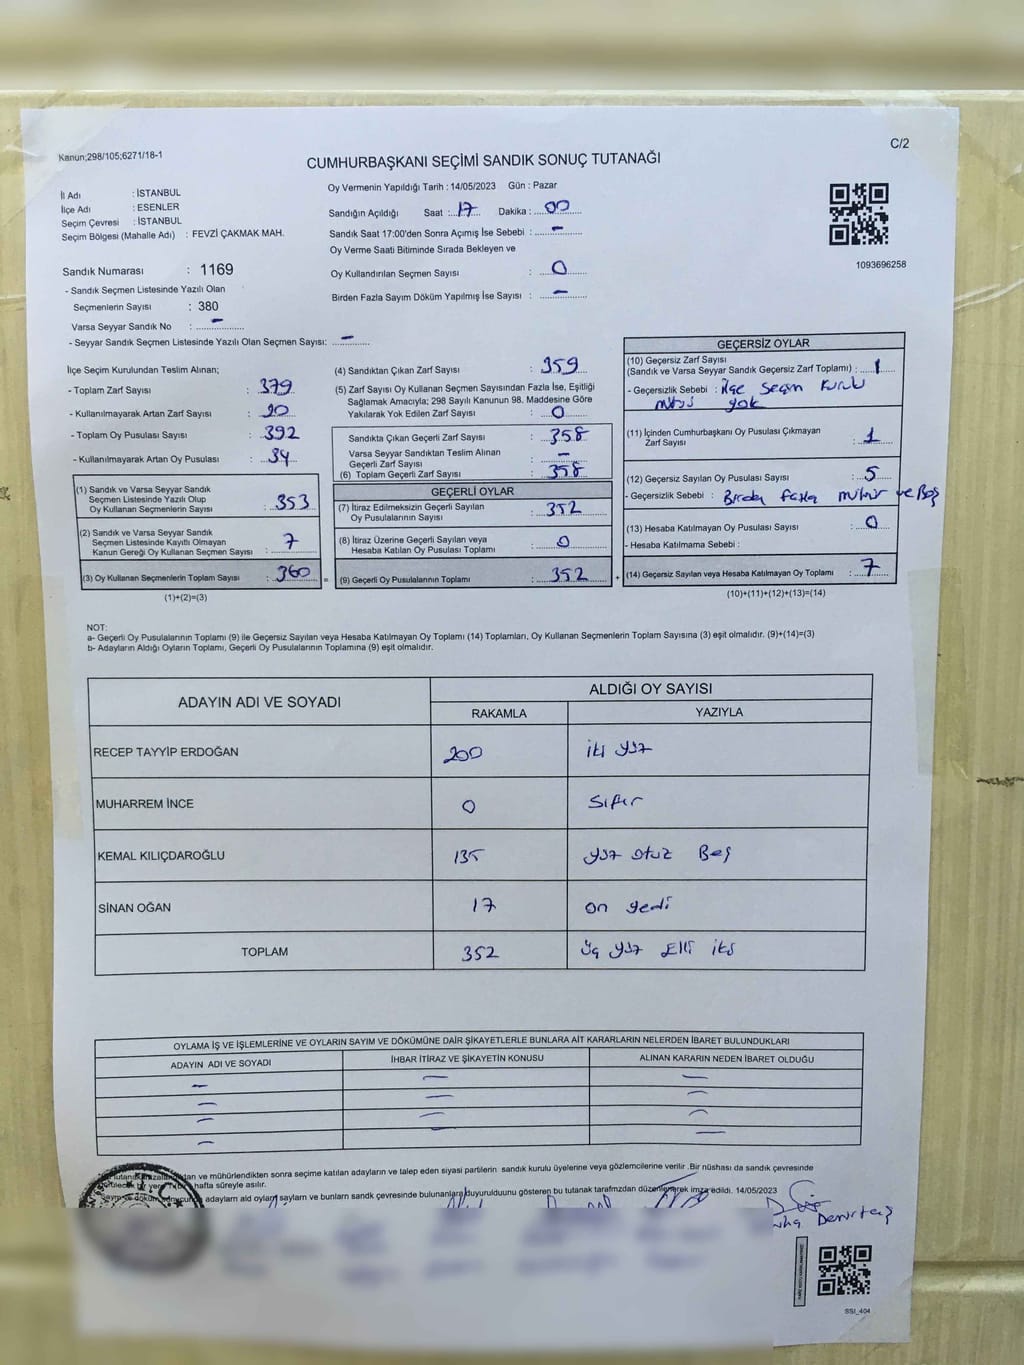 Kanun;298/105;6271/18-1
C/2
CUMHURBAŞKANI SEÇİMİ SANDIK SONUÇ TUTANAĞI
İl Adı : İSTANBUL
İlçe Adı : ESENLER
Seçim Çevresi : İSTANBUL
Seçim Bölgesi (Mahalle Adı) : FEVZİ ÇAKMAK MAH.
Sandık Numarası : 1169
- Sandık Seçmen Listesinde Yazılı Olan
Seçmenlerin Sayısı : 380
Varsa Seyyar Sandık No : -
- Seyyar Sandık Seçmen Listesinde Yazılı Olan Seçmen Sayısı: -
Oy Vermenin Yapıldığı Tarih : 14/05/2023 Gün : Pazar
Sandığın Açıldığı Saat : 17 Dakika : 00
Sandık Saat 17:00'den Sonra Açımış İse Sebebi : -
Oy Verme Saati Bitiminde Sırada Bekleyen ve
Oy Kullandırılan Seçmen Sayısı : 0
Birden Fazla Sayım Döküm Yapılmış İse Sayısı : -
1093696258
İlçe Seçim Kurulundan Teslim Alınan;
- Toplam Zarf Sayısı : 379
- Kullanılmayarak Artan Zarf Sayısı : 20
- Toplam Oy Pusulası Sayısı : 392
- Kullanılmayarak Artan Oy Pusulası : 34
(1) Sandık ve Varsa Seyyar Sandık
Seçmen Listesinde Yazılı Olup
Oy Kullanan Seçmenlerin Sayısı : 353
(2) Sandık ve Varsa Seyyar Sandık
Seçmen Listesinde Kayıtlı Olmayan
Kanun Gereği Oy Kullanan Seçmen Sayısı : 7
(3) Oy Kullanan Seçmenlerin Toplam Sayısı : 360
(1)+(2)=(3)
(4) Sandıktan Çıkan Zarf Sayısı : 359
(5) Zarf Sayısı Oy Kullanan Seçmen Sayısından Fazla İse, Eşitliği
Sağlamak Amacıyla; 298 Sayılı Kanunun 98. Maddesine Göre
Yakılarak Yok Edilen Zarf Sayısı : 0
Sandıkta Çıkan Geçerli Zarf Sayısı : 358
Varsa Seyyar Sandıktan Teslim Alınan
Geçerli Zarf Sayısı : -
(6) Toplam Geçerli Zarf Sayısı : 358
GEÇERLİ OYLAR
(7) İtiraz Edilmeksizin Geçerli Sayılan
Oy Pusulalarının Sayısı : 352
(8) İtiraz Üzerine Geçerli Sayılan veya
Hesaba Katılan Oy Pusulası Toplamı : 0
(9) Geçerli Oy Pusulalarının Toplamı : 352
GEÇERSİZ OYLAR
(10) Geçersiz Zarf Sayısı
(Sandık ve Varsa Seyyar Sandık Geçersiz Zarf Toplamı) : 1
- Geçersizlik Sebebi : ilçe seçim kurulu
mührü yok
(11) İçinden Cumhurbaşkanı Oy Pusulası Çıkmayan
Zarf Sayısı : 1
(12) Geçersiz Sayılan Oy Pusulası Sayısı : 5
- Geçersizlik Sebebi : Birden fazla mühür ve Boş
(13) Hesaba Katılmayan Oy Pusulası Sayısı : 0
- Hesaba Katılmama Sebebi :
(14) Geçersiz Sayılan veya Hesaba Katılmayan Oy Toplamı : 7
(10)+(11)+(12)+(13)=(14)
NOT:
a- Geçerli Oy Pusulalarının Toplamı (9) ile Geçersiz Sayılan veya Hesaba Katılmayan Oy Toplamı (14) Toplamları, Oy Kullanan Seçmenlerin Toplam Sayısına (3) eşit olmalıdır. (9)+(14)=(3)
b- Adayların Aldığı Oyların Toplamı, Geçerli Oy Pusulalarının Toplamına (9) eşit olmalıdır.
ADAYIN ADI VE SOYADI ALDIĞI OY SAYISI
RAKAMLA YAZIYLA
RECEP TAYYİP ERDOĞAN 200 iki yüz
MUHARREM İNCE 0 Sıfır
KEMAL KILIÇDAROĞLU 135 yüz otuz Beş
SİNAN OĞAN 17 on yedi
TOPLAM 352 üç yüz Elli iki
OYLAMA İŞ VE İŞLEMLERİNE VE OYLARIN SAYIM VE DÖKÜMÜNE DAİR ŞİKAYETLERLE BUNLARA AİT KARARLARIN NELERDEN İBARET BULUNDUKLARI
ADAYIN ADI VE SOYADI İHBAR İTİRAZ VE ŞİKAYETİN KONUSU ALINAN KARARIN NEDEN İBARET OLDUĞU
ve mühürlendikten sonra seçime katılan adayların ve talep eden siyasi partilerin sandık kurulu üyelerine veya gözlemcilerine verilir .Bir nüshası da sandık çevresinde
hafta süreyle asılır.
adayların ald oyların sayların ve bunların sandk çevresinde bulunanlara duyurulduunu gösteren bu tutanak tarafmzdan düzenlenerek imza edildi. 14/05/2023
Demirtaş
SSI_404